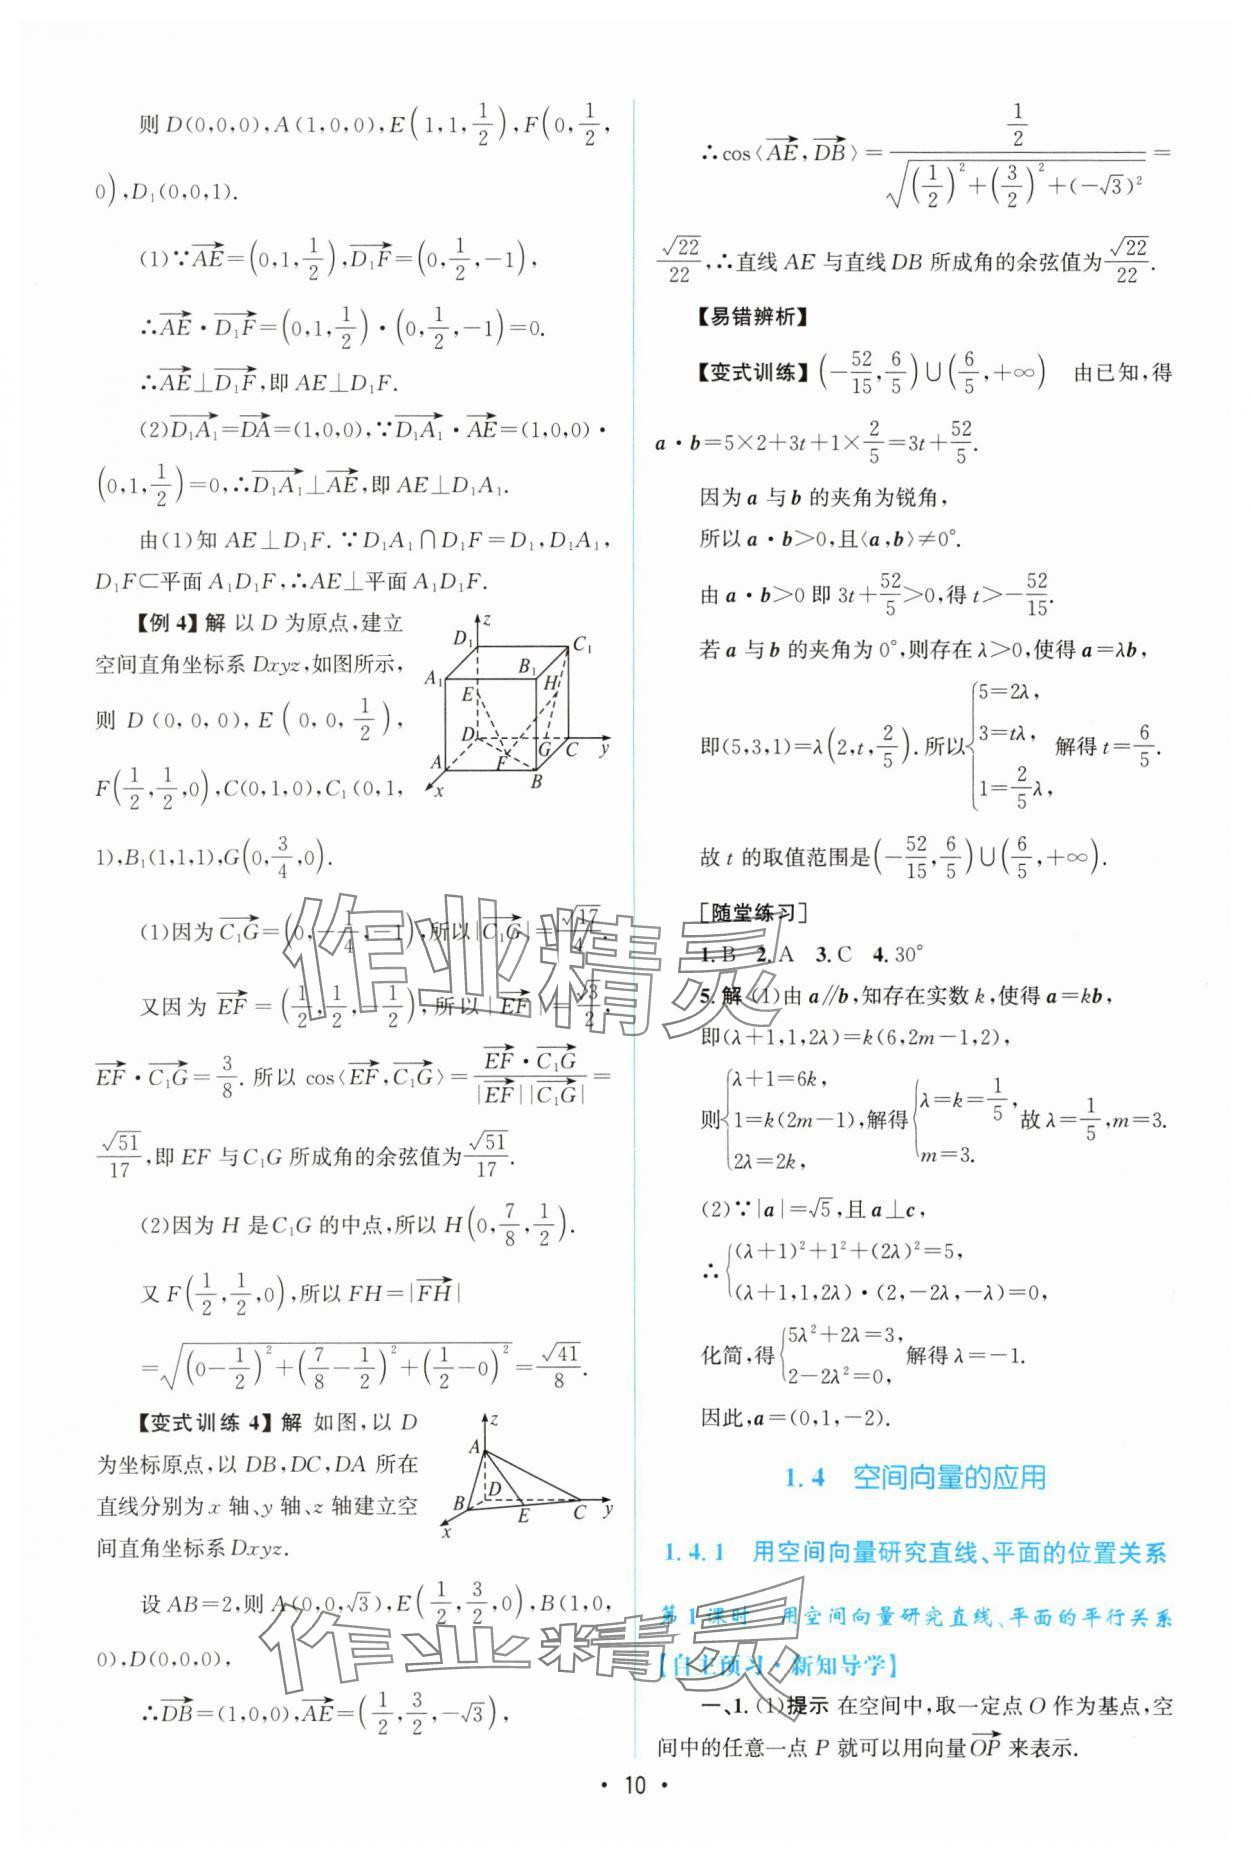 则 D(0,0,0),A(1,0,0),E(1,1,1/2),F(0,1/2,
0),D₁(0,0,1).
(1)∵AE→=(0,1,1/2),D₁F→=(0,1/2,-1),
∴AE→·D₁F→=(0,1,1/2)·(0,1/2,-1)=0.
∴AE→⊥D₁F→,即 AE⊥D₁F.
(2)D₁A₁→=DA→=(1,0,0),∵D₁A₁→·AE→=(1,0,0)·
(0,1,1/2)=0,∴D₁A₁→⊥AE→,即 AE⊥D₁A₁.
由(1)知 AE⊥D₁F.∵D₁A₁∩D₁F=D₁,D₁A₁,
D₁F⊂平面 A₁D₁F,∴AE⊥平面 A₁D₁F.
【例 4】解 以 D 为原点,建立
空间直角坐标系 Dxyz,如图所示,
则 D(0,0,0),E(0,0,1/2),
F(1/2,1/2,0),C(0,1,0),C₁(0,1,
1),B₁(1,1,1),G(0,3/4,0).
z
D₁
C₁
A₁
B₁
H
E
D
G
C
y
A
F
B
x
(1)因为 C₁G→=(0,-1/4,-1),所以|C₁G→|=√17/4.
又因为 EF→=(1/2,1/2,-1/2),所以|EF→|=√3/2,
EF→·C₁G→=3/8.所以 cos⟨EF→,C₁G→⟩=EF→·C₁G→/|EF→||C₁G→|=
√51/17,即 EF 与C₁G 所成角的余弦值为√51/17.
(2)因为 H 是C₁G 的中点,所以 H(0,7/8,1/2).
又 F(1/2,1/2,0),所以 FH=|FH→|
=√((0-1/2)²+(7/8-1/2)²+(1/2-0)²)=√41/8.
【变式训练 4】解 如图,以 D
为坐标原点,以 DB,DC,DA 所在
直线分别为 x 轴、y 轴、z 轴建立空
间直角坐标系 Dxyz.
z
A
D
B
E
C
y
x
设 AB=2,则 A(0,0,√3),E(1/2,3/2,0),B(1,0,
0),D(0,0,0),
∴DB→=(1,0,0),AE→=(1/2,3/2,-√3),
∴cos⟨AE→,DB→⟩=(1/2)/√((1/2)²+(3/2)²+(-√3)²)=
√22/22,∴直线 AE 与直线 DB 所成角的余弦值为√22/22.
【易错辨析】
【变式训练】(-52/15,6/5)∪(6/5,+∞) 由已知,得
a·b=5×2+3t+1×2/5=3t+52/5.
因为 a 与 b 的夹角为锐角,
所以 a·b>0,且⟨a,b⟩≠0°.
由 a·b>0 即 3t+52/5>0,得 t>-52/15.
若 a 与 b 的夹角为 0°,则存在 λ>0,使得 a=λb,
即(5,3,1)=λ(2,t,2/5).所以{5=2λ, 3=tλ, 1=2/5λ, 解得 t=6/5.
故 t 的取值范围是(-52/15,6/5)∪(6/5,+∞).
[随堂练习]
1.B 2.A 3.C 4.30°
5.解 (1)由 a∥b,知存在实数 k,使得 a=kb,
即(λ+1,1,2λ)=k(6,2m-1,2),
则{λ+1=6k, 1=k(2m-1), 2λ=2k, 解得{λ=k=1/5, m=3. 故 λ=1/5,m=3.
(2)∵|a|=√5,且 a⊥c,
∴{(λ+1)²+1²+(2λ)²=5, (λ+1,1,2λ)·(2,-2λ,-λ)=0,
化简,得{5λ²+2λ=3, 2-2λ²=0, 解得 λ=-1.
因此,a=(0,1,-2).
1.4 空间向量的应用
1.4.1 用空间向量研究直线、平面的位置关系
第 1 课时 用空间向量研究直线、平面的平行关系
【自主预习·新知导学】
一、1.(1)提示 在空间中,取一定点 O 作为基点,空
间中的任意一点 P 就可以用向量OP→来表示.
·10·
作业精灵
作业精灵